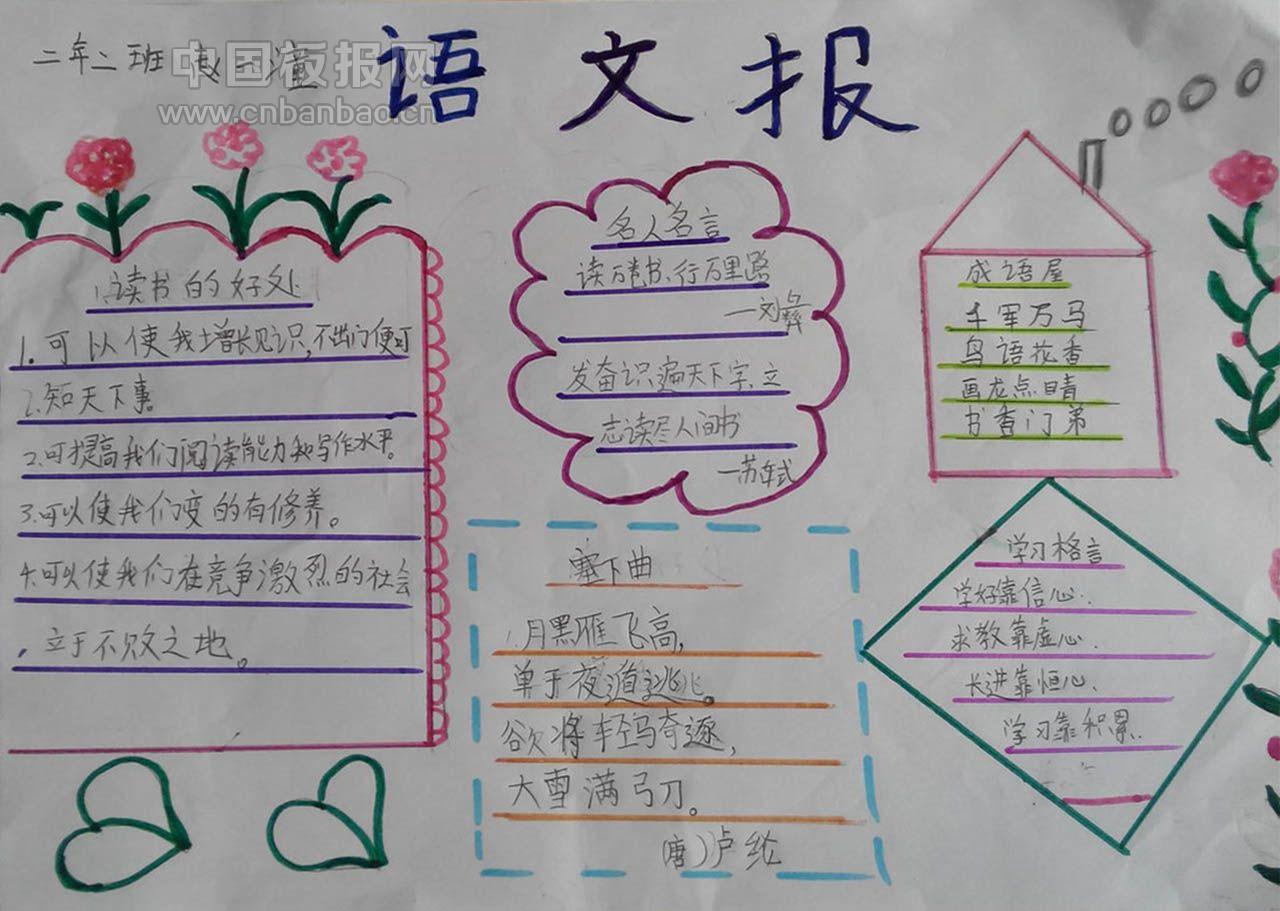 二年二班
中国板报网
www.cnbanbao.cn
语文报
读书的好处
1.可以使我增长见识,不出门便可
2.知天下事。
2.可提高我们阅读能力和写作水平。
3.可以使我们变的有修养。
4.可以使我们在竞争激烈的社会
,立于不败之地。
名人名言
读万卷书、行万里路
—刘彝
发奋识遍天下字、立
志读尽人间书
—苏轼
塞下曲
月黑雁飞高,
单于夜遁逃。
欲将轻骑逐,
大雪满弓刀。
(唐)卢纶
成语屋
千军万马
鸟语花香
画龙点睛
书香门弟
学习格言
学好靠信心、
求教靠虚心、
长进靠恒心、
学习靠积累.